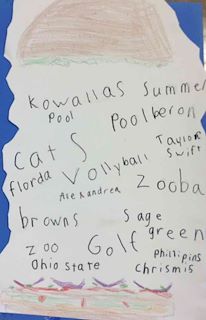 Kowallas Summer
Pool Poolberon
Cats Taylor Swift
florda Vollyball
Alexandrea Zooba
browns Sage green
zoo Golf
Phillipins
Ohio state Chrismis